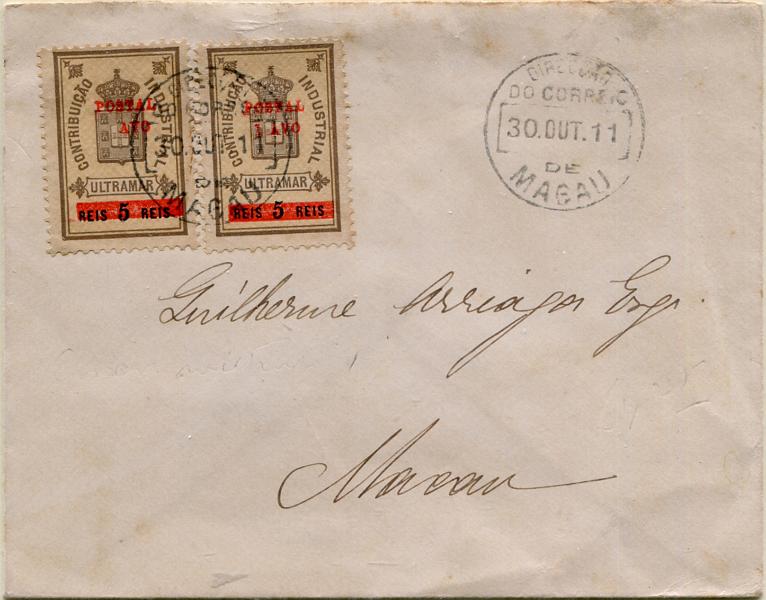 CONTRIBUIÇÃO INDUSTRIAL
POSTAL
AVO
ULTRAMAR
REIS 5 REIS
CONTRIBUIÇÃO INDUSTRIAL
POSTAL
1 AVO
ULTRAMAR
REIS 5 REIS
30.OUT.11
MACAU
DIRECÇÃO
DO CORREIO
30.OUT.11
DE
MACAU
Guilherme Arriaga Esqr.
Macau